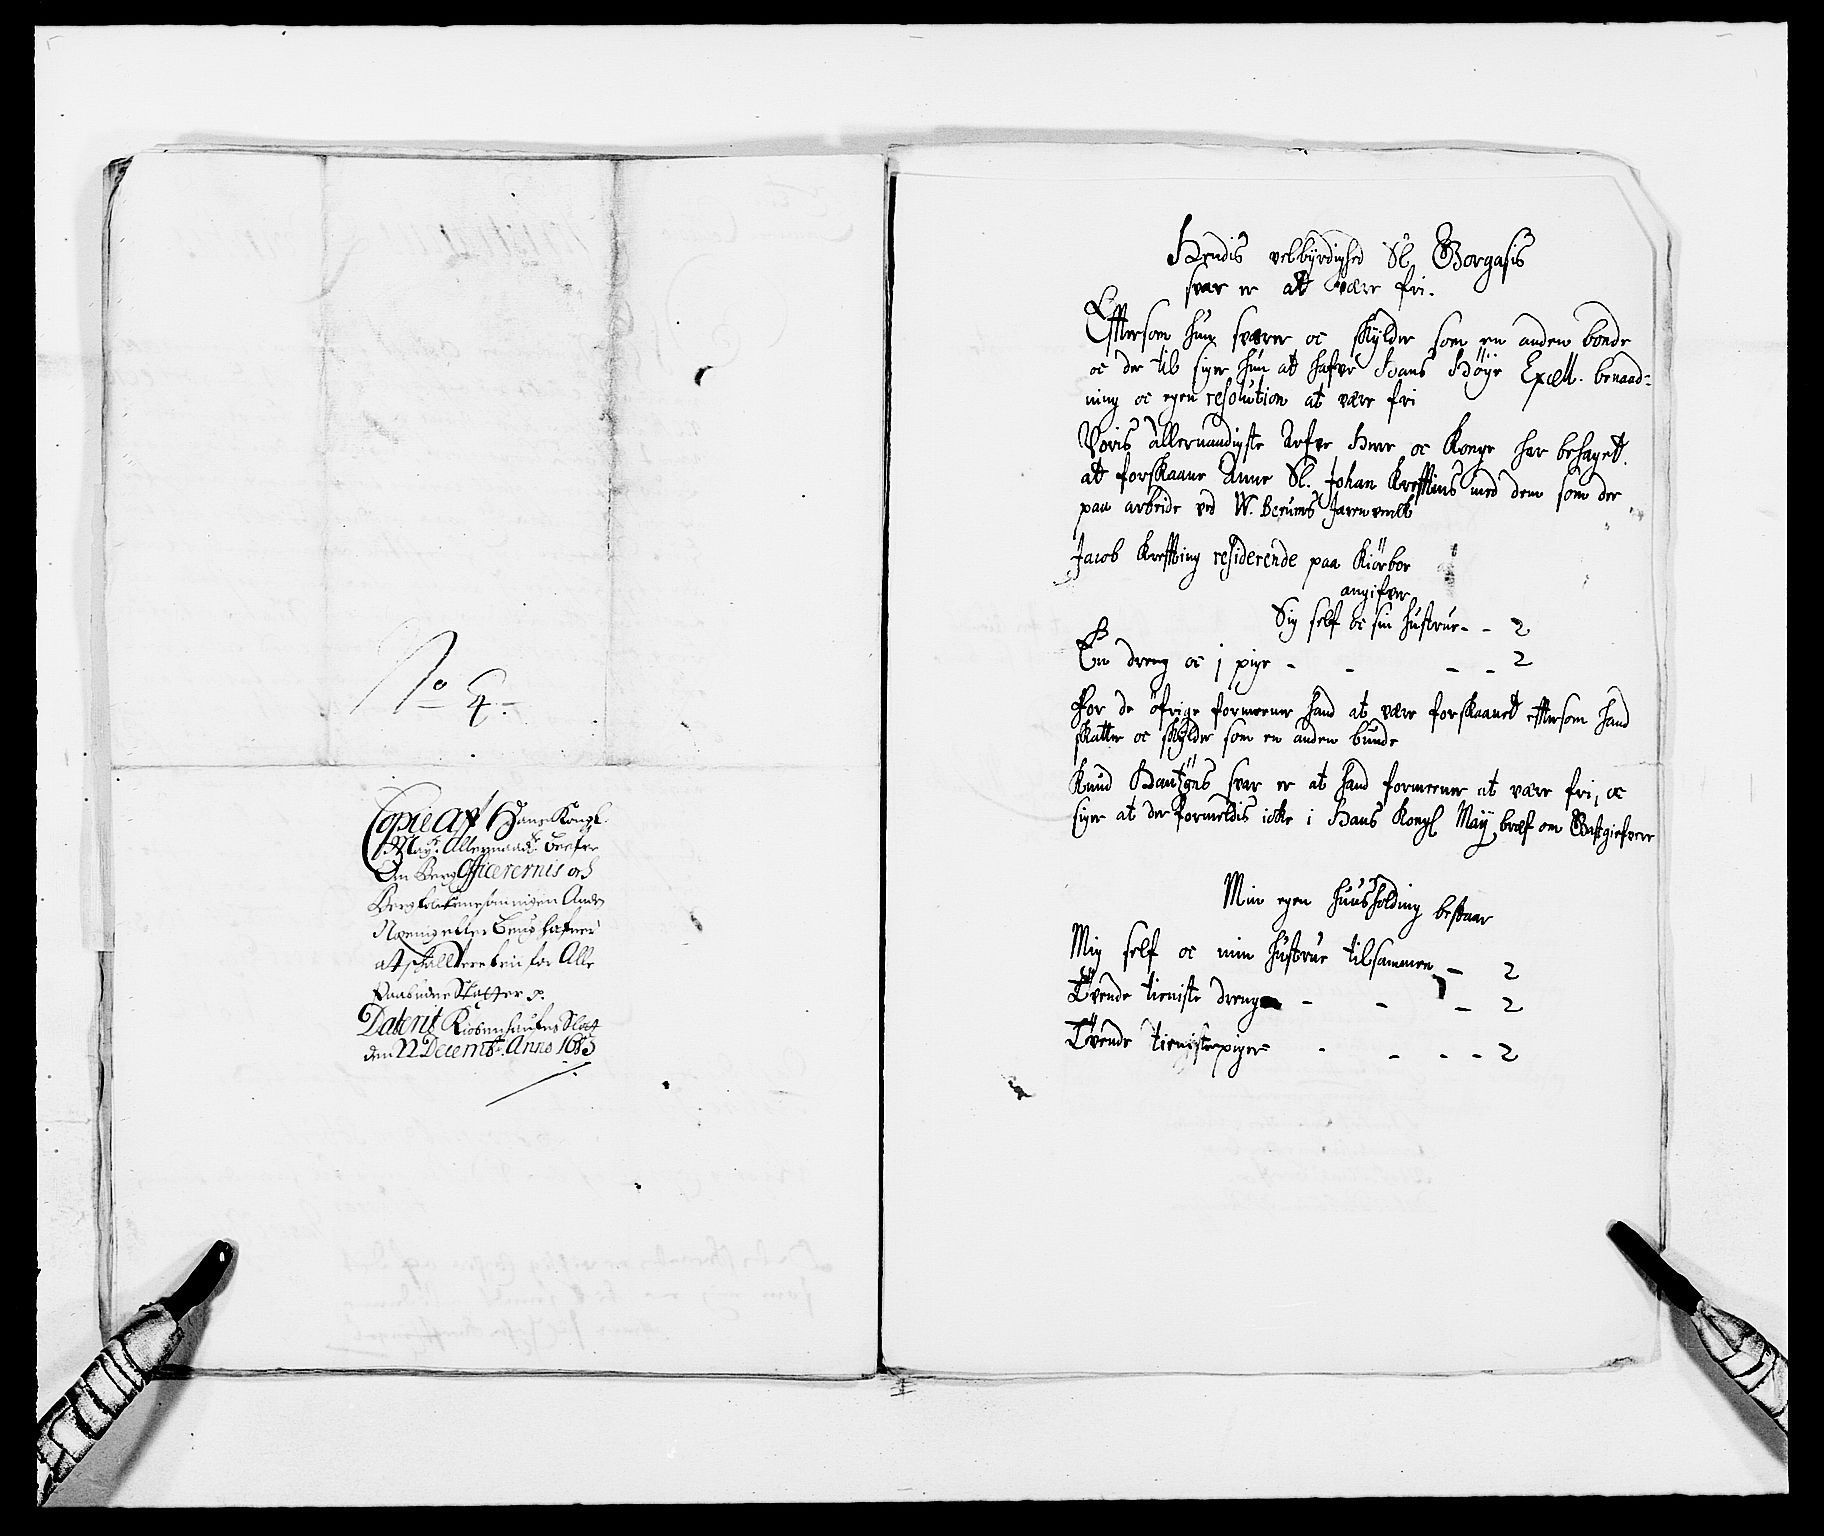 No 4.
Copie Af Hans Kongl.
May. Allernaad. 
Om Berg Officerernis och
Berg
at skall vere frii for Alle
Paabudne Skatter p.
Daterit Kiobenhaufns Slott
den 22 Decembr. Anno 1683
Hendis velbÿrdighed Sl. Borgasis
svar er att være fri.
Efftersom hun svarer oc skÿlder som en anden bonde
oc der til siger hun at hafve Hans Höÿe Excell. benaad-
ning oc egen resolution at være fri
Voris allernaadigste Arfve Herre oc Konge har behaget
att forskaane Anne Sl. Johan Krefftings med dem som der
paa arbeide ved W. Berums Jarenverck
Jacob Kreffting residerende paa Kiörbor
angifver
Sig self oc sin hustrue - - 2
En dreng oc j pige - - - - 2
For de öfrige formeener hand at være forskaanett efftersom hand
skatter oc skÿlder som en anden bunde
Knud svar er at hand formeener at være fri, oc
siger at der formeldis icke i Hans Kongl Maÿ. bref om Gastgiefvere
Min egen huusholding bestaar
Mig self oc min hustrue tilsammen - 2
Tvende tieniste drenge - - - 2
Tvende tienistepiger - - - - 2